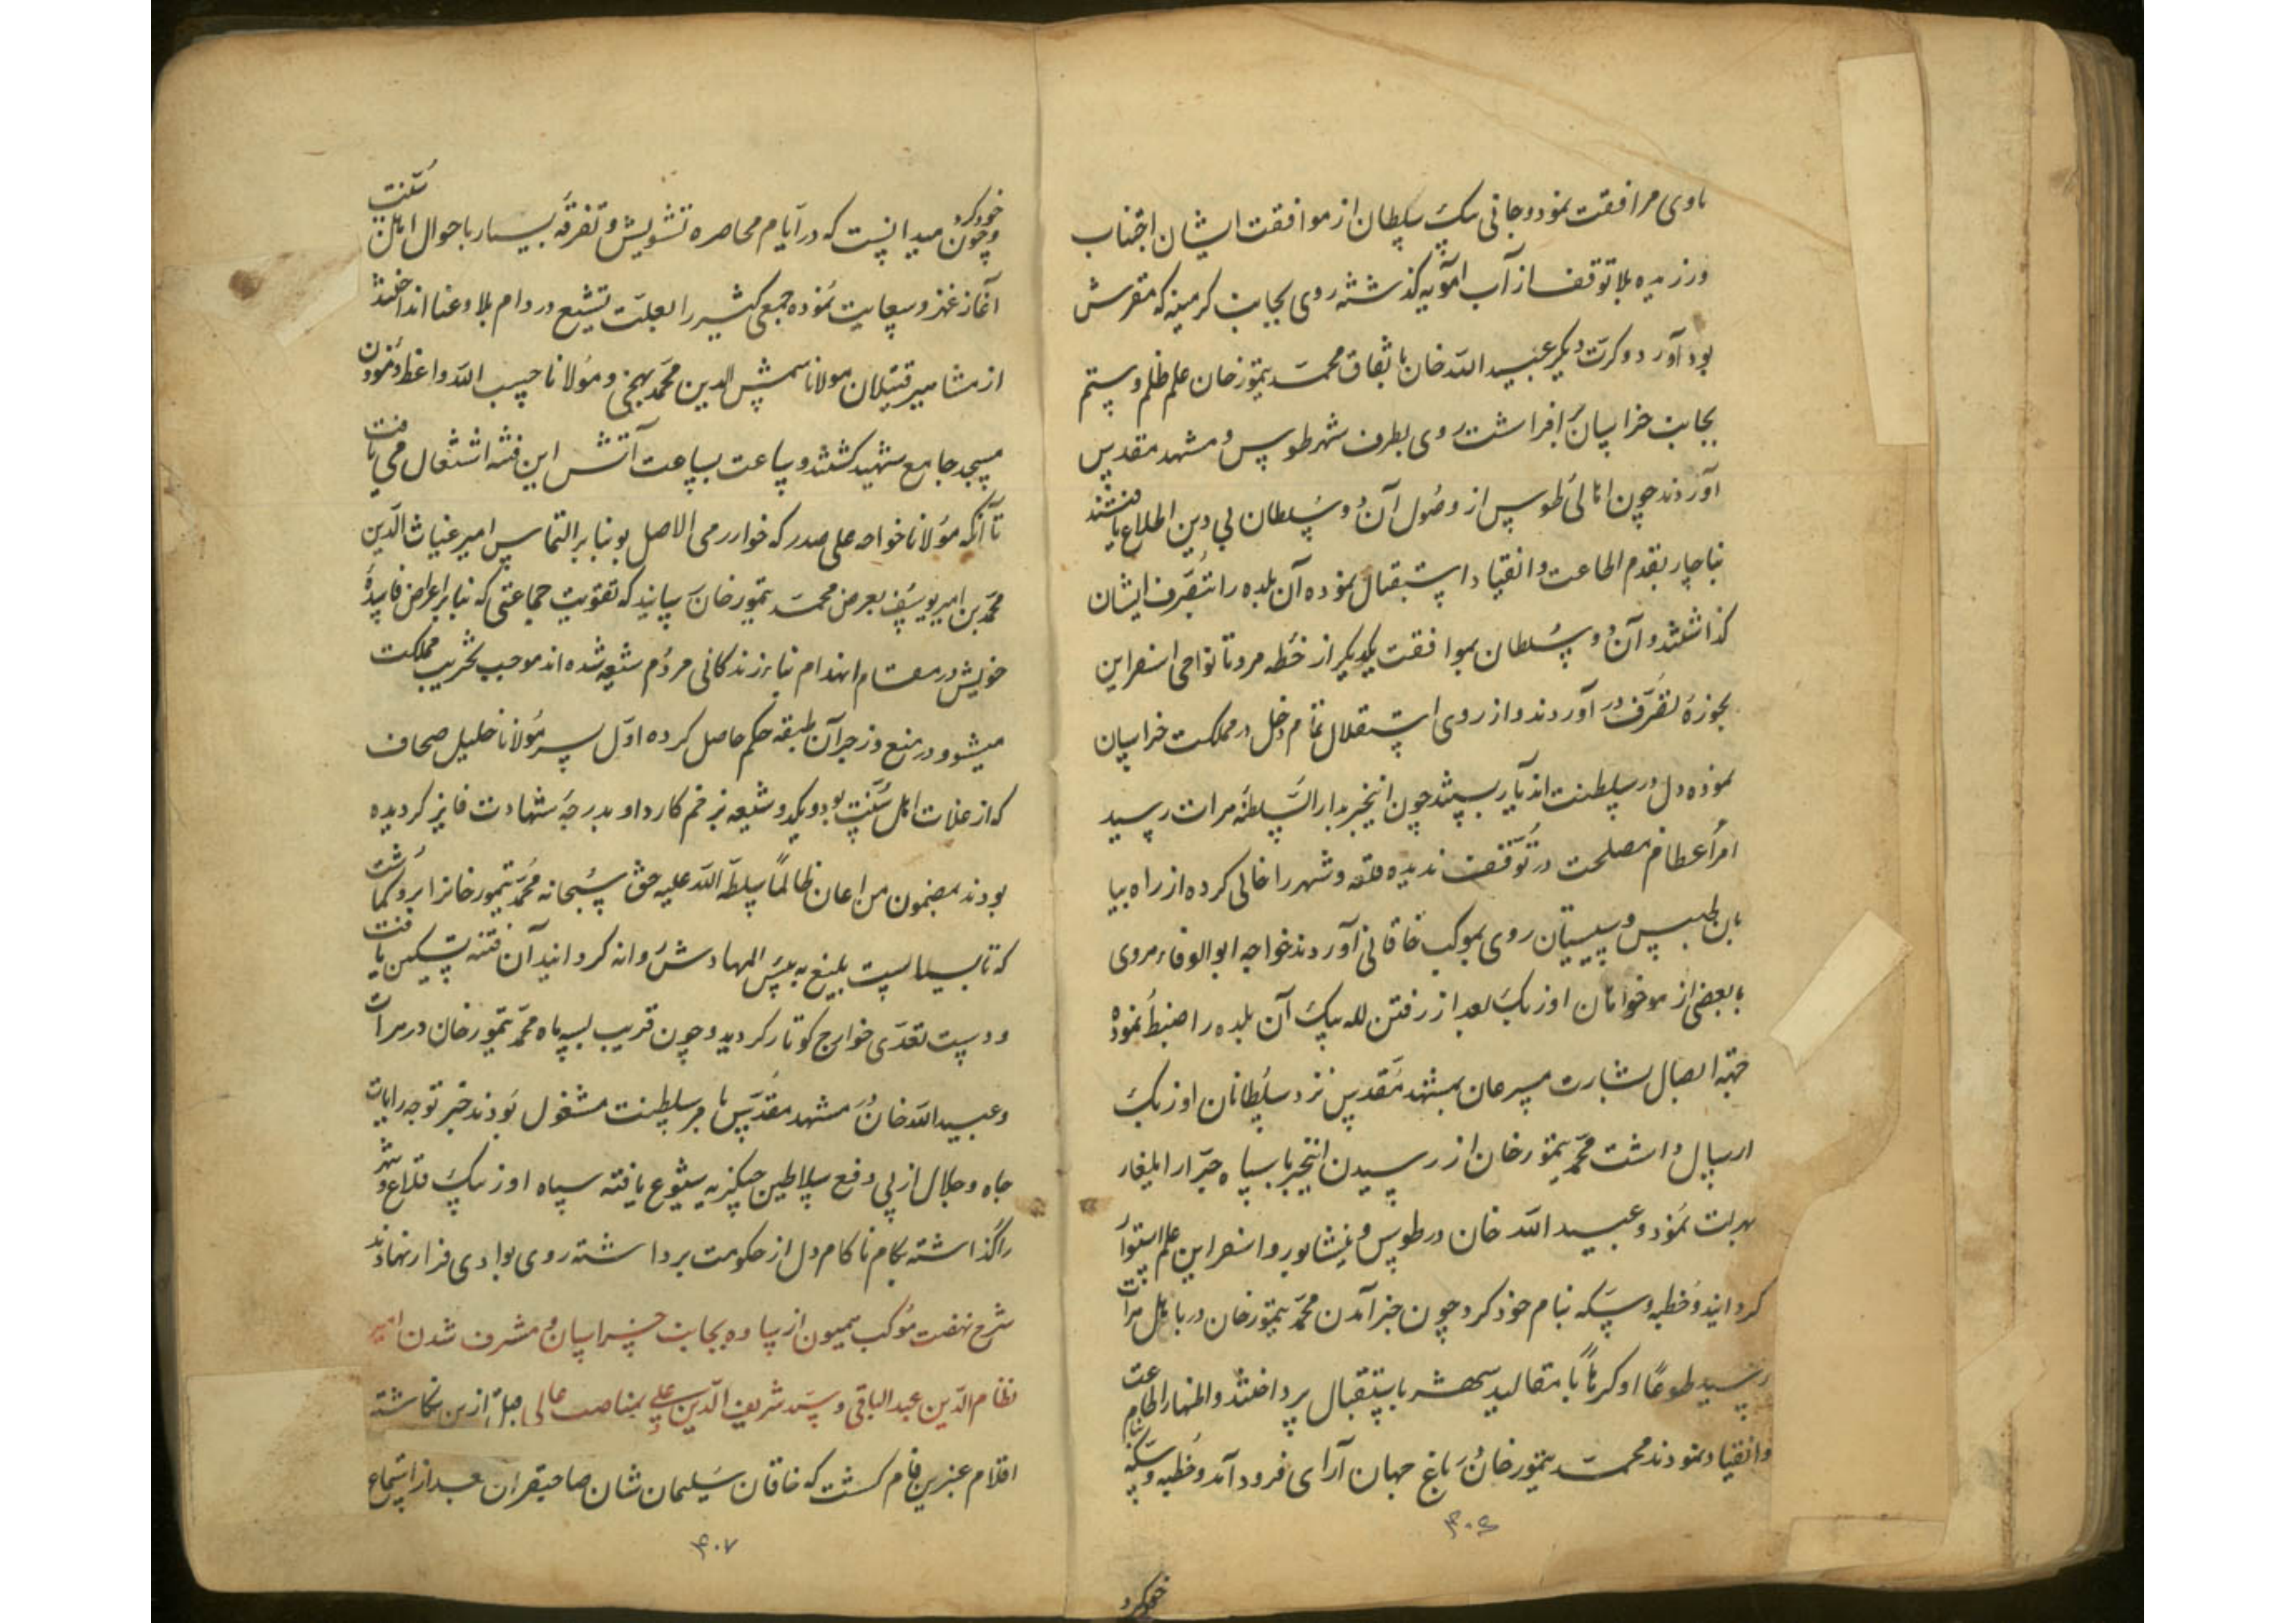 باوی مرافقت نمود و جانی بیک سلطان از موافقت ایشان اجتناب
ورزیده بلا توقف از آب آمویه گذشته روی بجانب کرمینه که مقرش
بود آورد و کرت دیگر عبید الله خان باتفاق محمد تیمور خان علم ظلم و ستم
بجانب خراسان افراشت روی بطرف شهر طوس و مشهد مقدس
آوردند چون اهالی طوس از وصول آن دو سلطان بی دین اطلاع یافتند
بناچار بقدم اطاعت و انقیاد استقبال نموده آن بلده را بتصرف ایشان
گذاشتند و آن دو سلطان بموافقت یکدیگر از خطه مرو تا نواحی اسفراین
بحوزه تصرف در آوردند و از روی استقلال تمام دخل در مملکت خراسان
نموده دل در سلطنت اندیار بستند چون اینخبر بدار السلطنه هرات رسید
امرأ عظام مصلحت در توقف ندیده قلعه و شهر را خالی کرده از راه بیا
بان طبس و سیستان روی بموکب خاقانی آوردند خواجه ابوالوفاء مروی
با بعضی از هوخواهان اوزبک بعد از رفتن لله بیک آن بلده را ضبط نموده
جهته ایصال بشارت مسرعان بمشهد مقدس نزد سلطانان اوزبک
ارسال داشت محمد تیمور خان از رسیدن اینخبر با سپاه جرار ایلغار
بهرات نمود و عبید الله خان در طوس و نیشابور و اسفراین علم استوأ
گردانید و خطبه و سکه بنام خود کرد چون خبر آمدن محمد تیمور خان در باهل هرات
رسید طوعاً او کرهاً با مقالید شهر باستقبال پرداختند و اظهار اطاعت
و انقیاد نمودند محمد تیمور خان در باغ جهان آرای فرود آمد و خطبه و سکه بنام
۴۰۶
خود کرد
خود کرد
و چون میدانست که در ایام محاصره تشویش و تفرقه بسیار باحوال اهل سنت
آغاز غمز و سعایت نموده جمعی کثیر را بعلت تشیع در دام بلا و عنا انداختند
از مشاهیر قتیلان مولانا شمس الدین محمد بهجی و مولانا حبیب الله واعظ و موذن
مسجد جامع شهید گشتند و ساعت بساعت آتش این فتنه اشتعال می یافت
تا آنکه مولانا خواجه علی صدر که خوارزمی الاصل بو بنابر التماس امیر غیاث الدین
محمد بن امیر یوسف بعرض محمد تیمور خان رسانید که تقویت جماعتی که بنابر اعراض فاسده
خویش در مقام انهدام بناء زندگانی مردم شیعه شده اند موجب تخریب مملکت
میشود و در منع و زجر آن طبقه حکم حاصل کرده اول پسر مولانا خلیل صحاف
که از غلات اهل سنت بود و یکدو شیعه بزخم کارد او بدرجه شهادت فایز گردیده
بودند بمضمون من اعان ظالماً سلطه الله علیه حق سبحانه محمد تیمور خانرا برو گماشت
که تا بسیاست بلیغ به بئس المهادش روانه گردانید آن فتنه تسکین یافت
و دست تعدی خوارج کوتاه گردید و چون قریب بسه ماه محمد تیمور خان در هرات
و عبید الله خان در مشهد مقدس بامر سلطنت مشغول بودند خبر توجه رایات
جاه و جلال از پی دفع سلاطین چنگیزیه شیوع یافته سپاه اوزبک قلاع و شهر
را گذاشته بکام ناکام دل از حکومت برداشته روی بوادی فرار نهادند
شرح نهضت موکب همیون از ساوه بجانب خراسان و مشرف شدن امیر
نظام الدین عبد الباقی و سید شریف الدین علی بمناصب عالی قبل ازین نگاشته
اقلام عنبرین فام گشت که خاقان سلیمان شان صاحبقران بعد از استماع
۴۰۷